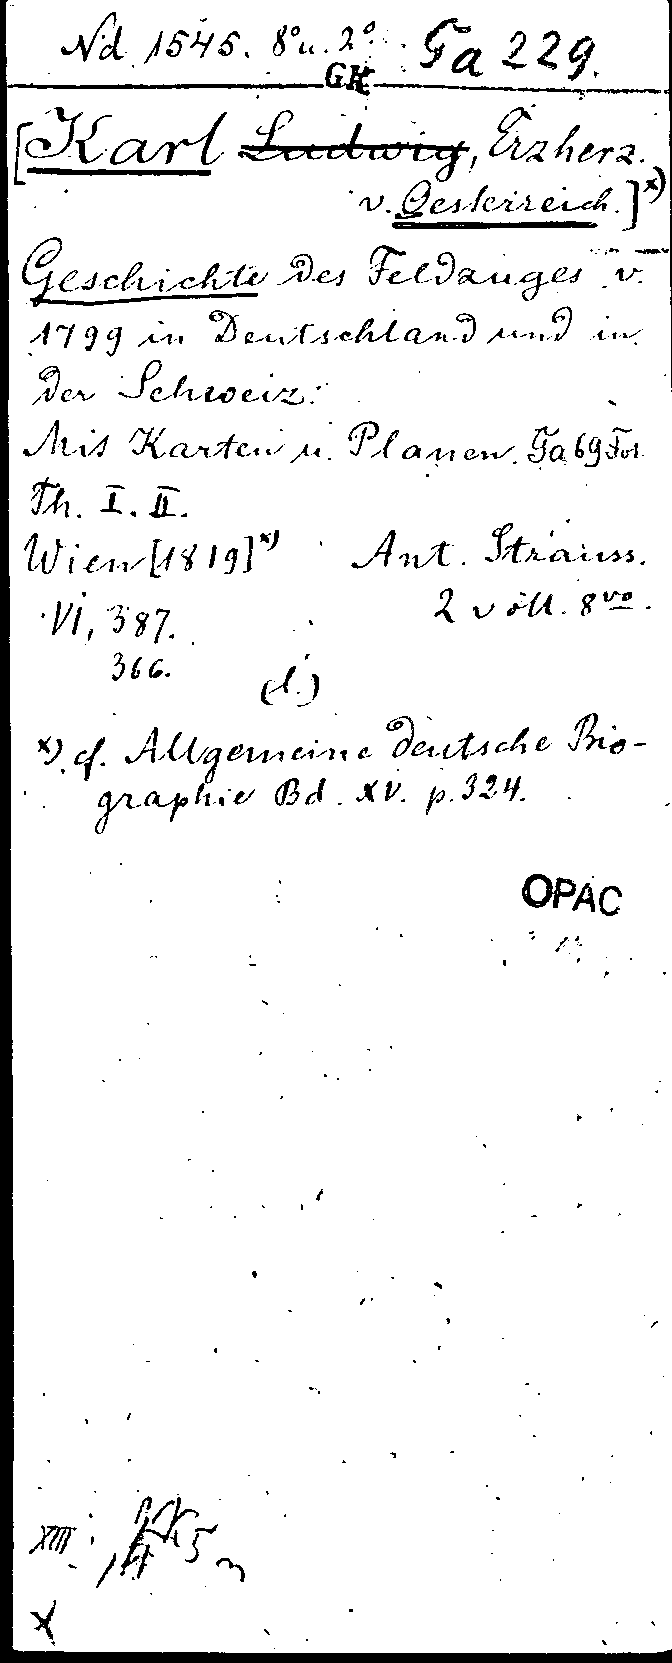 Nd 1545. 8° u. 2°. Ga 229.
GK
[Karl Ludwig, Erzherz.
v. Oesterreich.] x)
Geschichte des Feldzuges v.
1799 in Deutschland und in
der Schweiz.
Mit Karten u. Planen. Ga 69 Fol
Th. I. II.
Wien [1819] x) Ant. Strauss.
VI, 387. 2 voll. 8vo.
366.
(d.)
x) cf. Allgemeine deutsche Bio-
graphie Bd. XV. p. 324.
OPAC
XIII
x